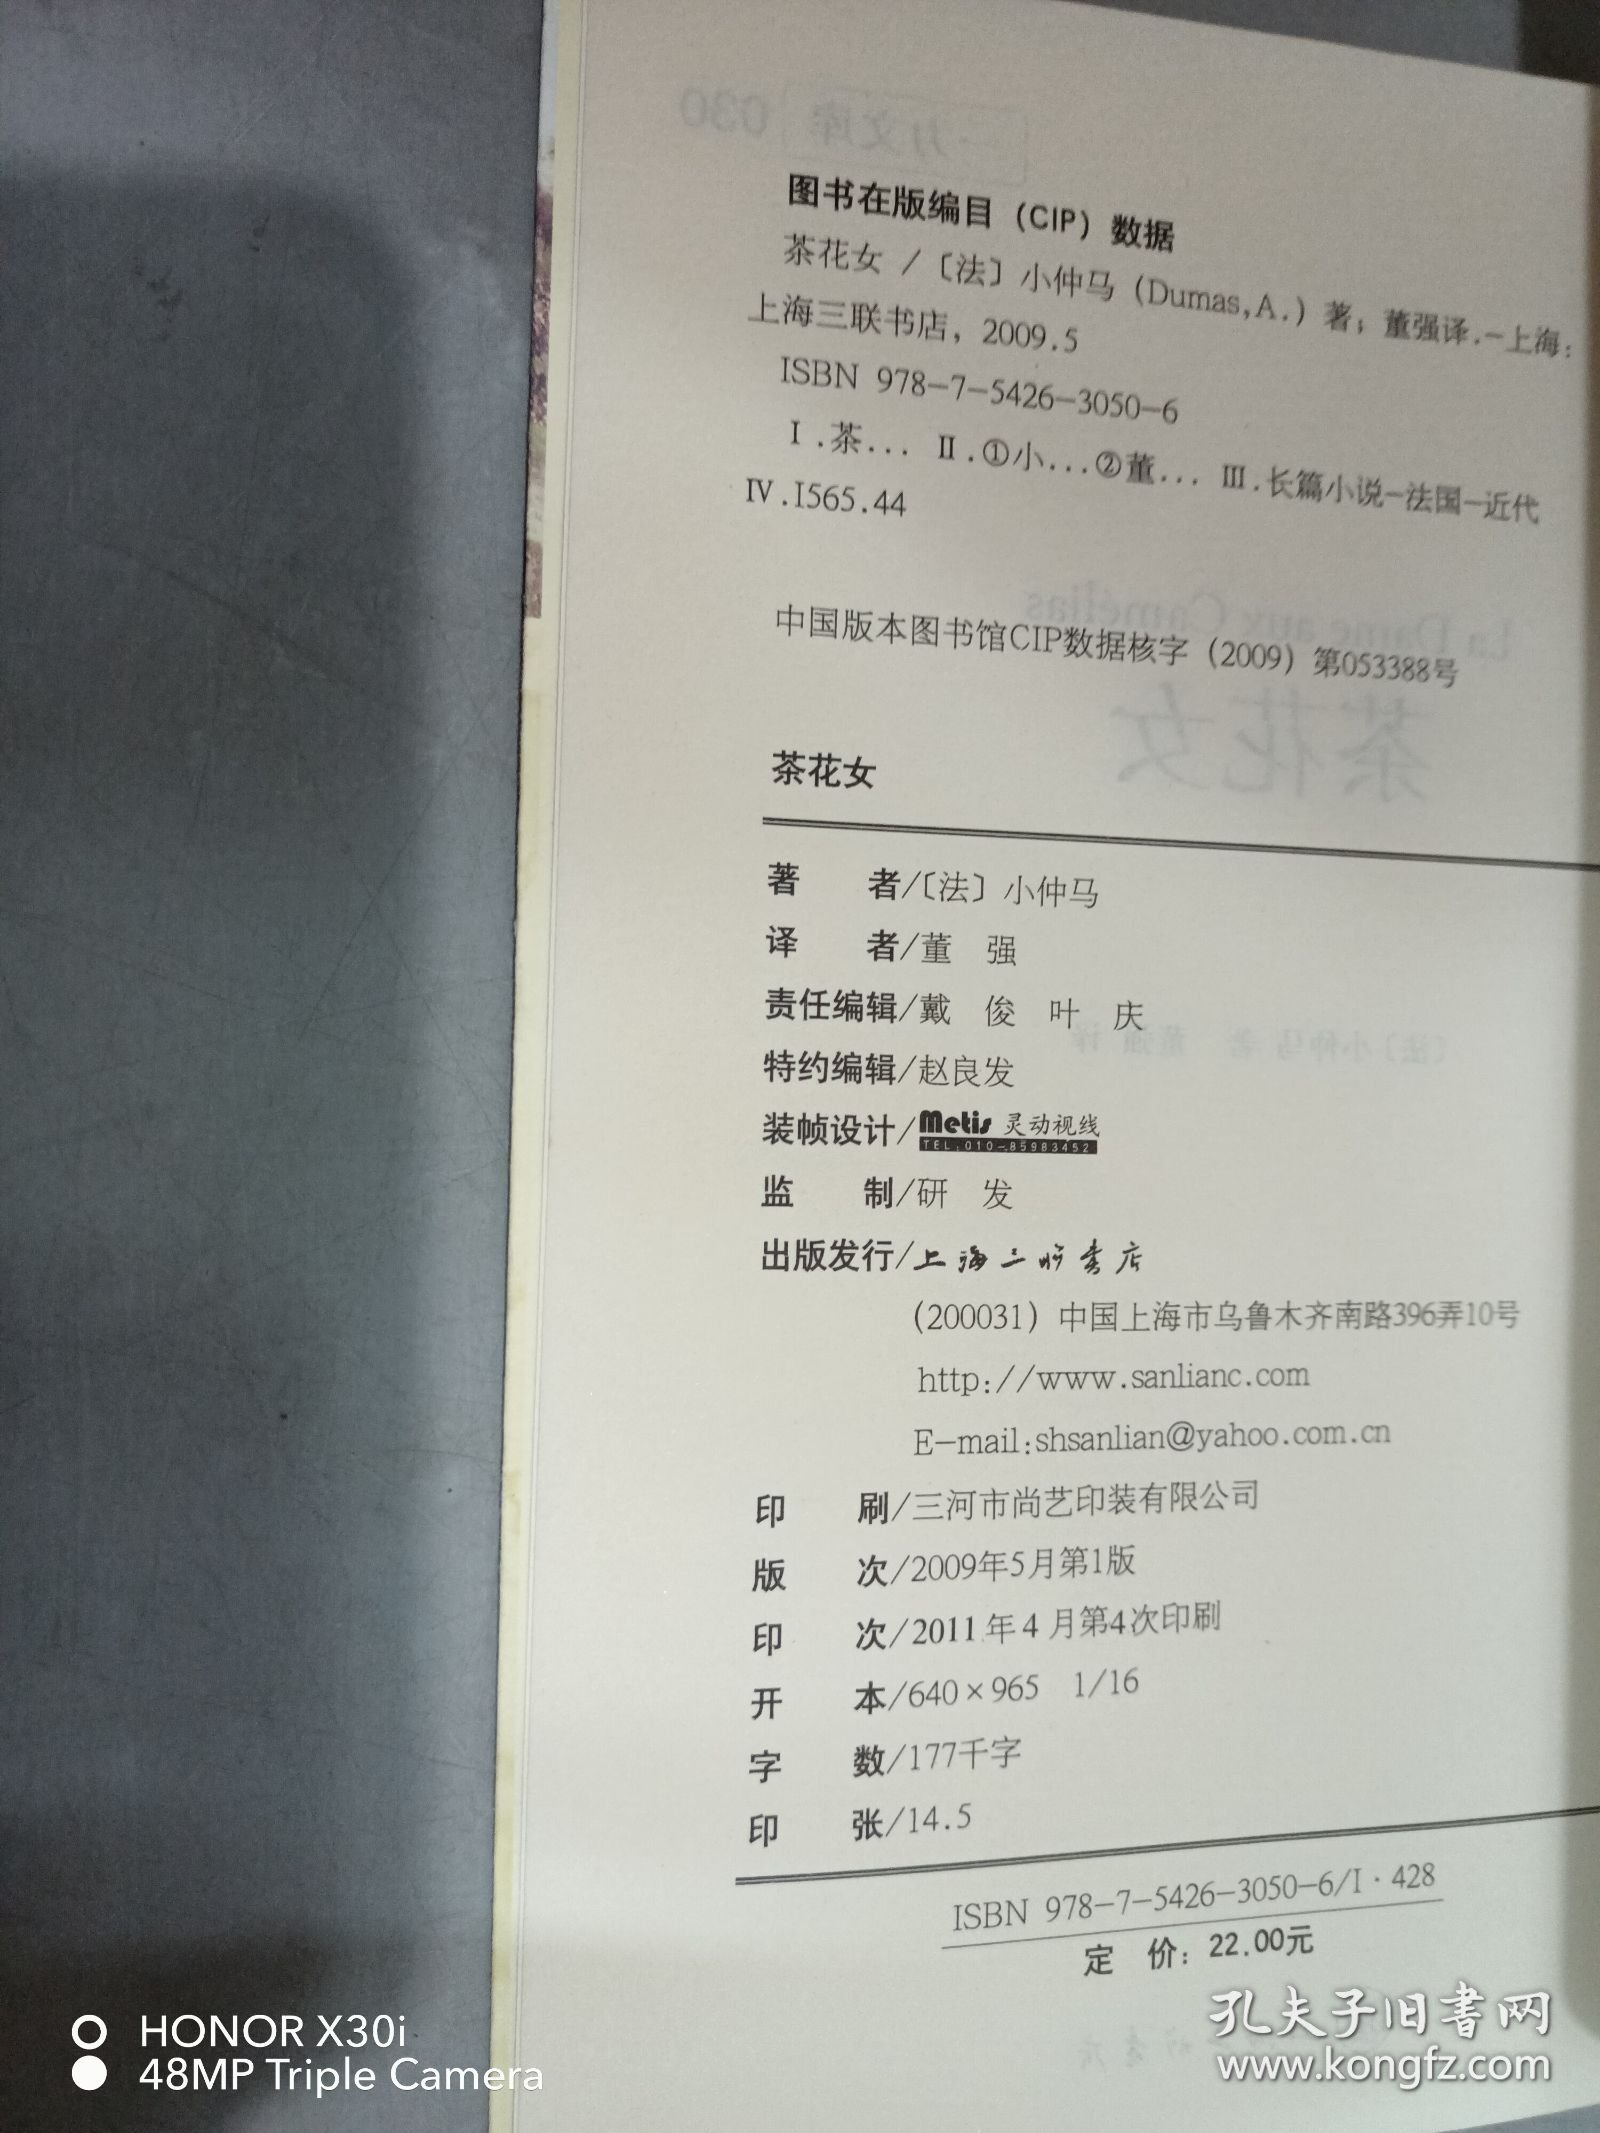 图书在版编目（CIP）数据
茶花女 /〔法〕小仲马（Dumas,A.）著；董强译.-上海：
上海三联书店，2009.5
ISBN 978-7-5426-3050-6
Ⅰ.茶... Ⅱ.①小...②董... Ⅲ.长篇小说-法国-近代
Ⅳ.I565.44
中国版本图书馆CIP数据核字（2009）第053388号
茶花女
著　　者/〔法〕小仲马
译　　者/董　强
责任编辑/戴　俊　叶　庆
特约编辑/赵良发
装帧设计/Metis 灵动视线
TEL:010-85983452
监　　制/研　发
出版发行/上海三联书店
（200031）中国上海市乌鲁木齐南路396弄10号
http://www.sanlianc.com
E-mail:shsanlian@yahoo.com.cn
印　　刷/三河市尚艺印装有限公司
版　　次/2009年5月第1版
印　　次/2011年4月第4次印刷
开　　本/640×965　1/16
字　　数/177千字
印　　张/14.5
ISBN 978-7-5426-3050-6/I·428
定　价：22.00元
孔夫子旧书网
www.kongfz.com
HONOR X30i
48MP Triple Camera